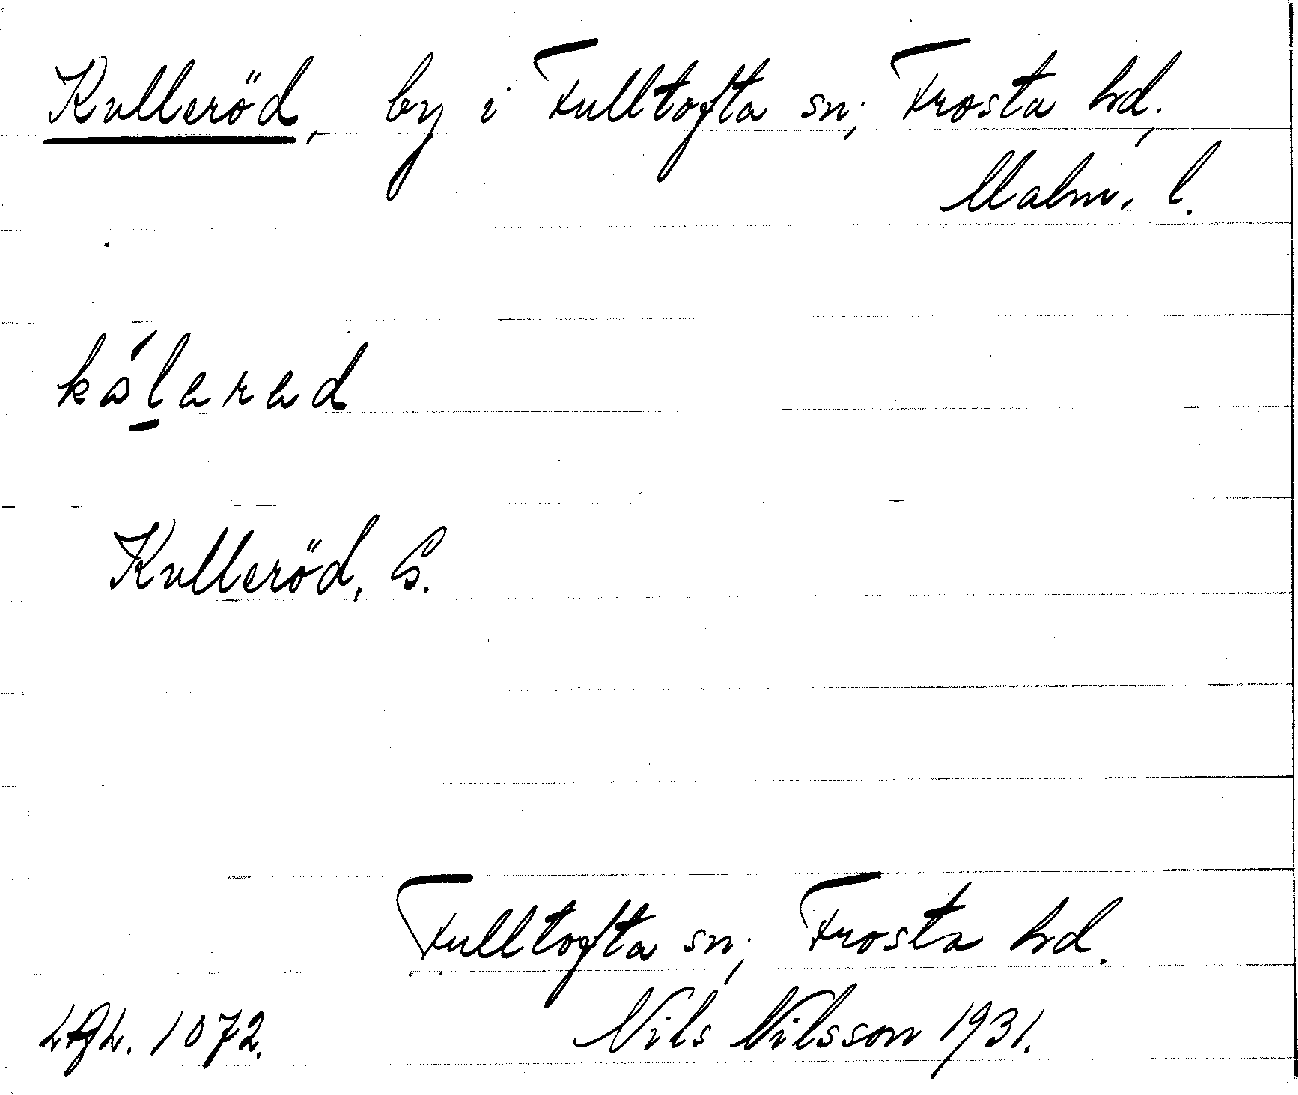 Kulleröd, by i Fulltofta sn, Frosta hd,
Malm. l.
kålarad
Kulleröd, G.
Fulltofta sn, Frosta hd.
Nils Nilsson 1931.
1072.